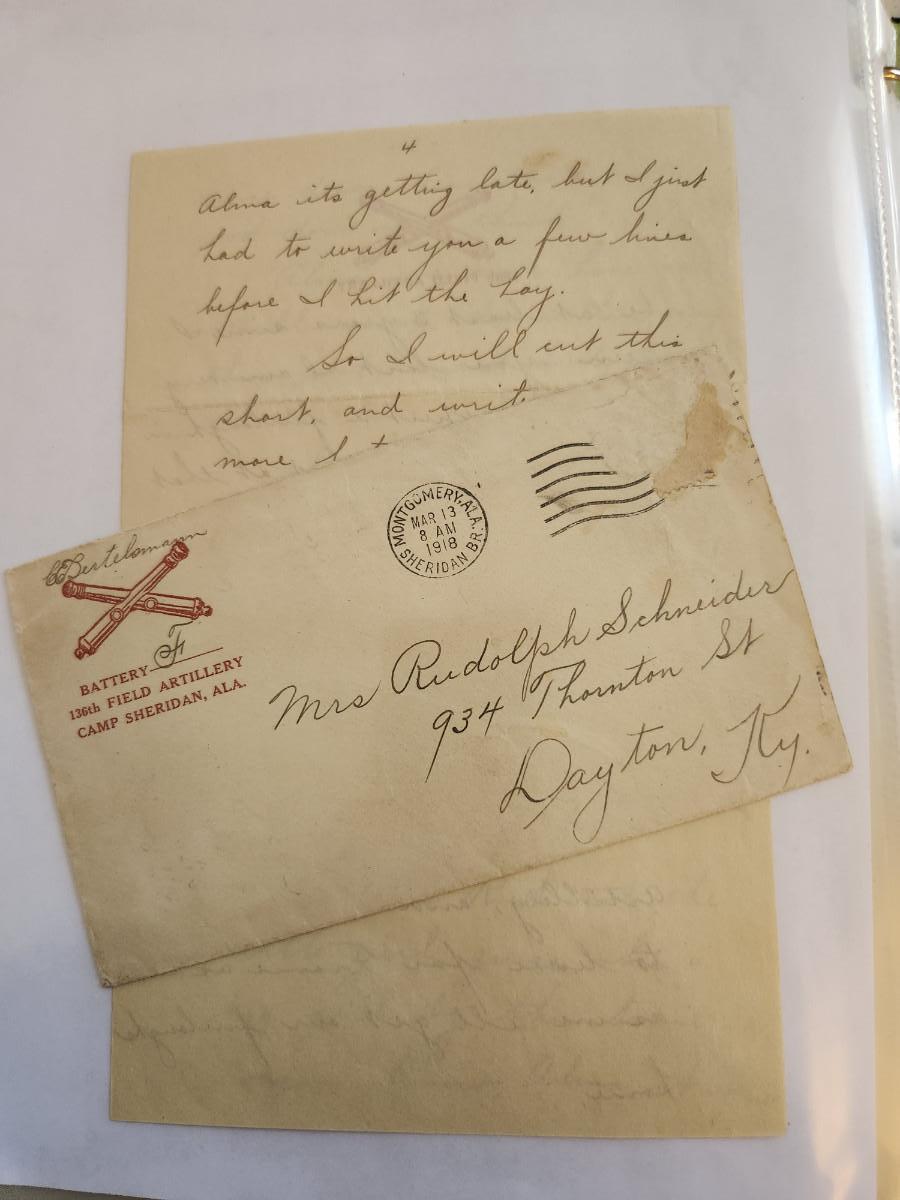 4
Alma its getting late, but I just
had to write you a few lines
before I hit the hay.
So I will cut this
short, and writ
more l
C Bertelsmann
BATTERY F
136th FIELD ARTILLERY
CAMP SHERIDAN, ALA.
MONTGOMERY, ALA.
MAR 13
8 AM
1918
SHERIDAN BR.
Mrs Rudolph Schneider
934 Thornton St
Dayton, Ky.